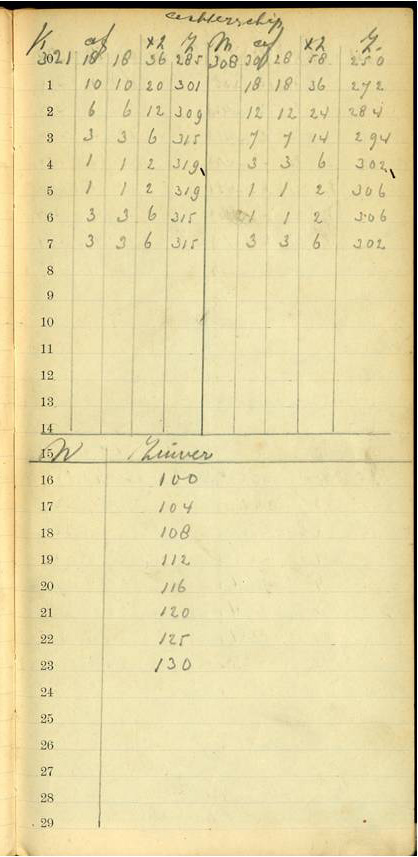 achterschip
K af x2 Z M af x2 Z
30 21 18 18 36 285 308 30 28 58 250
1 10 10 20 301 18 18 36 272
2 6 6 12 309 12 12 24 284
3 3 3 6 315 7 7 14 294
4 1 1 2 319 3 3 6 302
5 1 1 2 319 1 1 2 306
6 3 3 6 315 1 1 2 306
7 3 3 6 315 3 3 6 302
8
9
10
11
12
13
14
15 N Zuiver
16 100
17 104
18 108
19 112
20 116
21 120
22 125
23 130
24
25
26
27
28
29